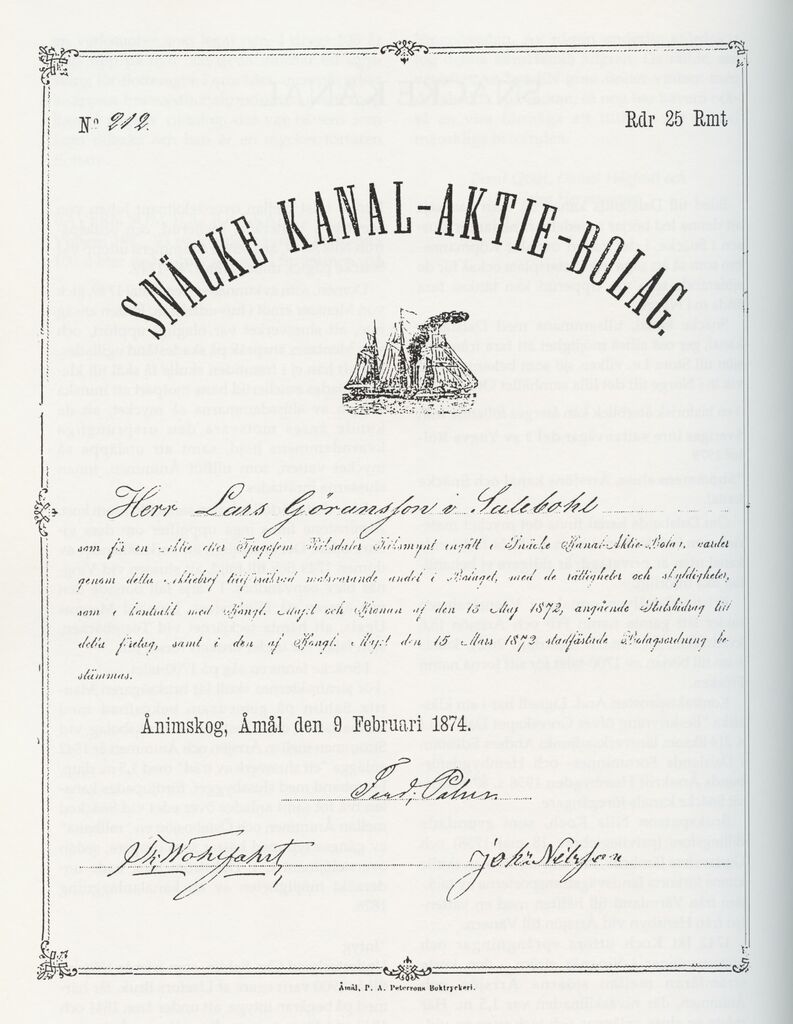 Nº 212.
Rdr 25 Rmt
SNÄCKE KANAL-AKTIE-BOLAG.
Herr Lars Göransson i Salebohl
som för en Aktie eller Tjugofem Riksdaler Riksmynt ingått i Snäcke Kanal-Aktie-Bolag, varder
genom detta Aktiebref tillförsäkrad motsvarande andel i Bolaget, med de rättigheter och skyldigheter,
som i kontrakt med Kongl. Maj:t och Kronan af den 15 Maj 1872, angående Statsbidrag till
detta företag, samt i den af Kongl. Maj:t den 15 Mars 1873 stadfästade Bolagsordning be-
stämmas.
Ånimskog, Åmål den 9 Februari 1874.
Ferd.
Fr. Wohlfahrt,
Joh: Nilsson
Åmål, P. A. Petersons Boktryckeri.